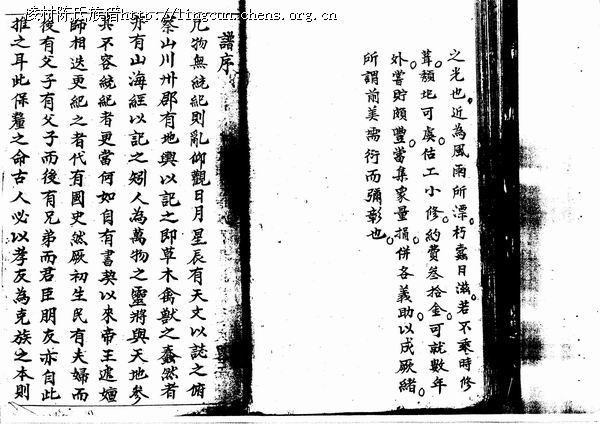 凌村陈氏族谱http://lingcun.chens.org.cn
之光也近為風雨所漂朽蠹日滋若不乘時修
葺頹圮可虞估工小修約費叁拾金可就數年
外嘗貯頗豐當集衆量捐併各義助以成厥緒
所謂前美濡衍而彌彰也
譜序
凡物無統紀則亂仰觀日月星辰有天文以誌之俯
察山川州郡有地輿以記之即草木禽獸之蠢然者
亦有山海經以記之矧人為萬物之靈將與天地參
其不容統紀者更當何如自有書契以來帝王遞嬗
師相迭更紀之者代有國史然厥初生民有夫婦而
後有父子有父子而後有兄弟而君臣朋友亦自此
推之耳此保釐之命古人必以孝友為克族之本則